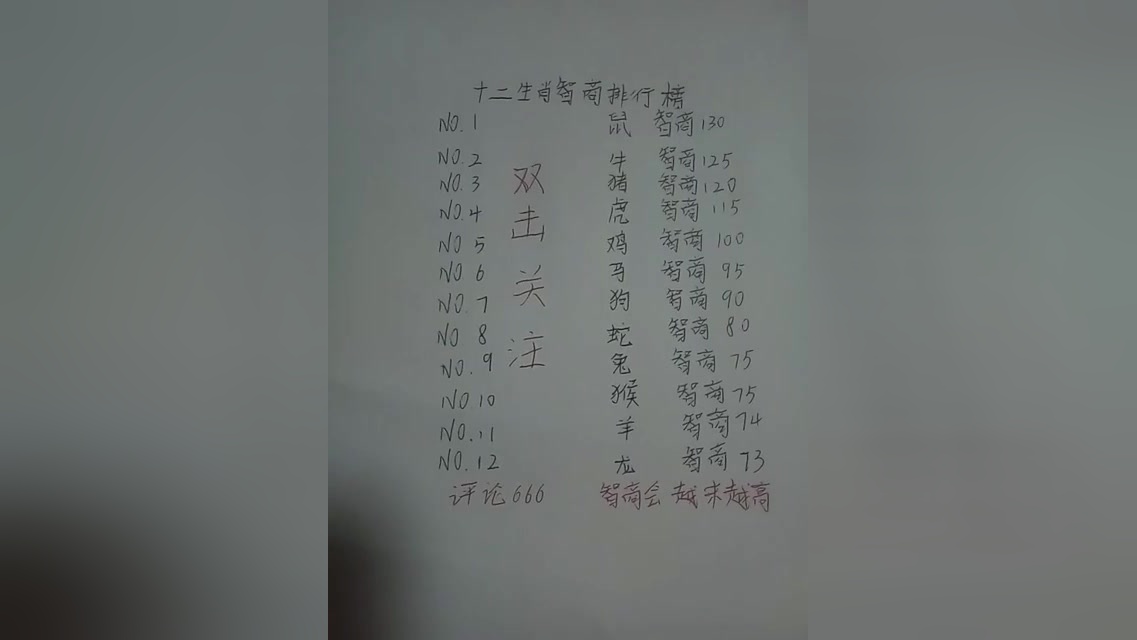 十二生肖智商排行榜
NO.1 鼠 智商130
NO.2 牛 智商125
NO.3 猪 智商120
NO.4 虎 智商 115
NO 5 鸡 智商 100
NO 6 马 智商 95
NO.7 狗 智商 90
NO 8 蛇 智商 80
NO.9 兔 智商 75
NO 10 猴 智商75
NO.11 羊 智商74
NO.12 龙 智商 73
双击关注
评论666 智商会越来越高